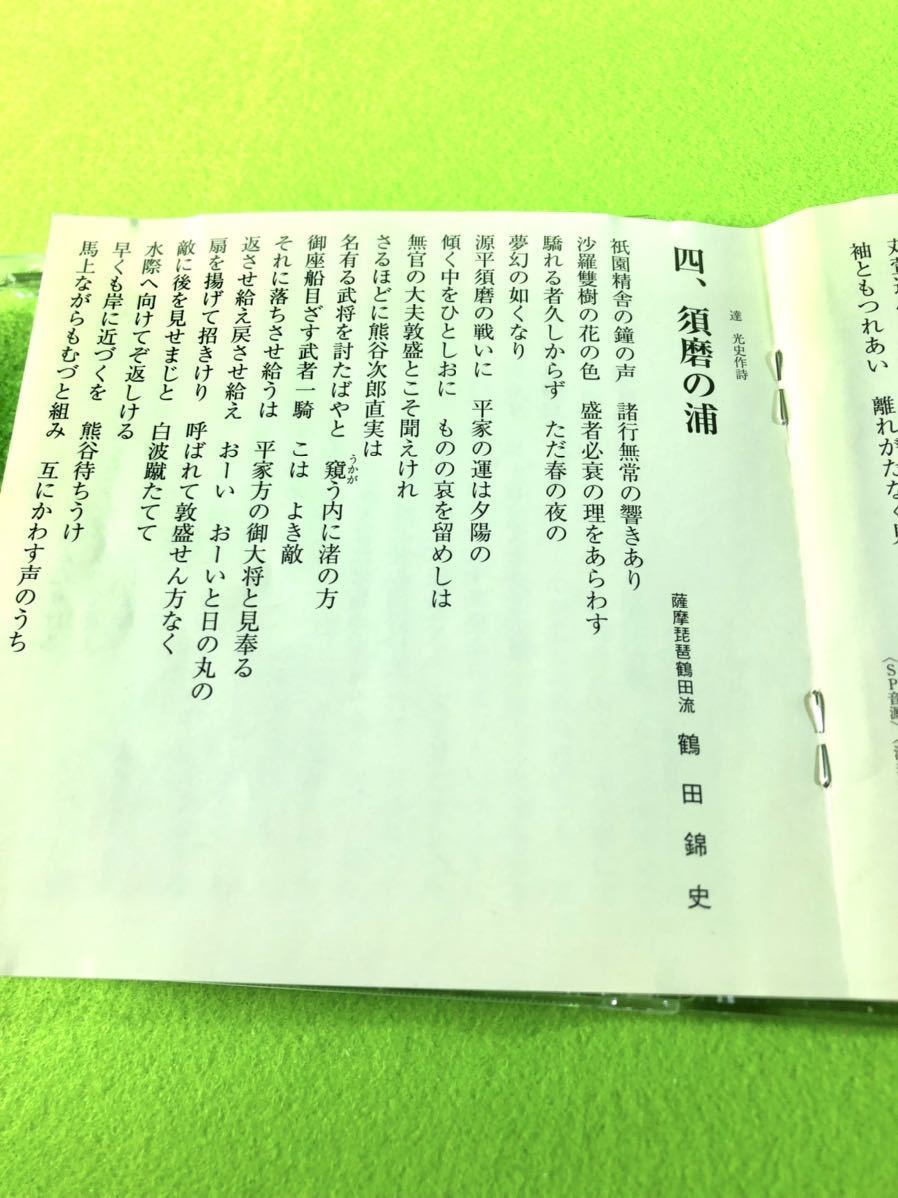 袖ともつれあい　離れがたなく見
〈SP音源〉
四、須磨の浦
達　光史作詩
薩摩琵琶鶴田流　鶴田錦史
祇園精舎の鐘の声　諸行無常の響きあり
沙羅雙樹の花の色　盛者必衰の理をあらわす
驕れる者久しからず　ただ春の夜の
夢幻の如くなり
源平須磨の戦いに　平家の運は夕陽の
傾く中をひとしおに　ものの哀を留めしは
無官の大夫敦盛とこそ聞えけれ
さるほどに熊谷次郎直実は
名有る武将を討たばやと　窺う内に渚の方
うかが
御座船目ざす武者一騎　こは　よき敵
それに落ちさせ給うは　平家方の御大将と見奉る
返させ給え戻させ給え　おーい　おーいと日の丸の
扇を揚げて招きけり　呼ばれて敦盛せん方なく
敵に後を見せまじと　白波蹴たてて
水際へ向けてぞ返しける
早くも岸に近づくを　熊谷待ちうけ
馬上ながらもむづと組み　互にかわす声のうち